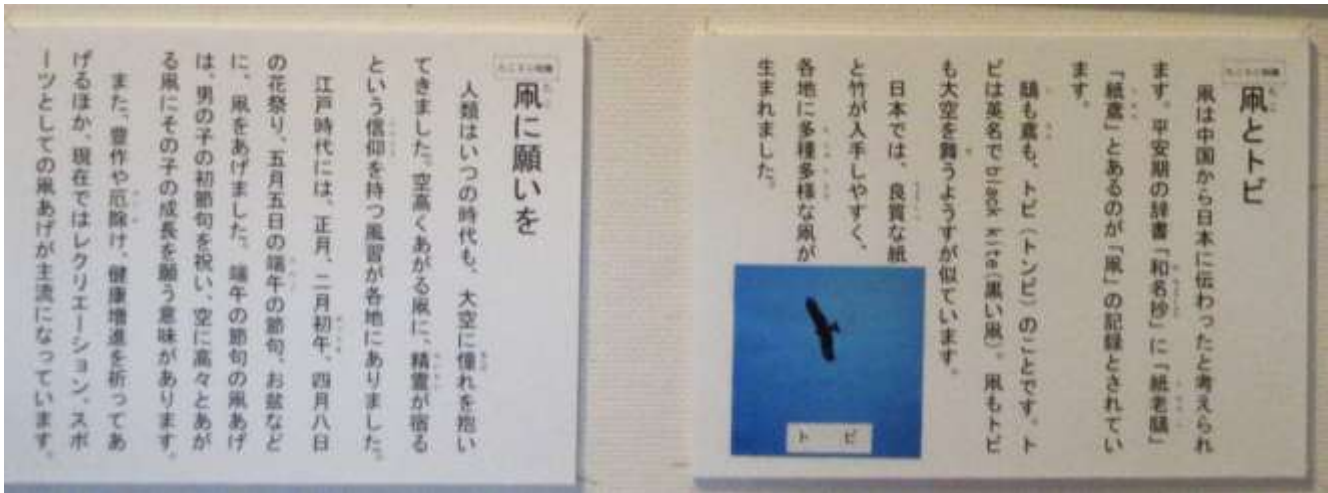 凧とトビ
凧は中国から日本に伝わったと考えられ
ます。平安期の辞書「和名抄」に「紙老鴟」
「紙鳶」とあるのが「凧」の記録とされてい
ます。
鴟も鳶も、トビ（トンビ）のことです。ト
ビは英名でblack kite（黒い凧）。凧もトビ
も大空を舞うようすが似ています。
日本では、良質な紙
と竹が入手しやすく、
各地に多種多様な凧が
生まれました。
トビ
凧に願いを
人類はいつの時代も、大空に憧れを抱い
てきました。空高くあがる凧に、精霊が宿る
という信仰を持つ風習が各地にありました。
江戸時代には、正月、二月初午、四月八日
の花祭り、五月五日の端午の節句、お盆など
に、凧をあげました。端午の節句の凧あげ
は、男の子の初節句を祝い、空に高々とあが
る凧にその子の成長を願う意味があります。
また、豊作や厄除け、健康増進を祈ってあ
げるほか、現在ではレクリエーション、スポ
ーツとしての凧あげが主流になっています。